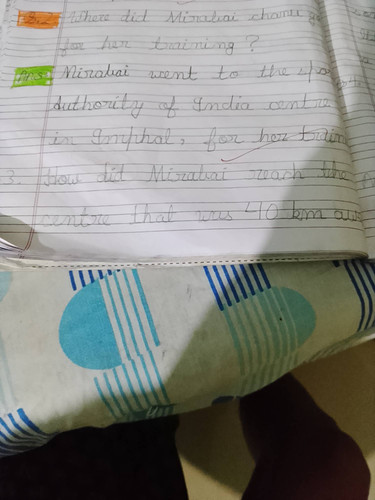 Q.2 Where did Mirabai chanu
for her training?
Ans: Mirabai went to the
Authority of India centre
in Imphal, for her train
3. How did Mirabai reach the
centre that was 40 km